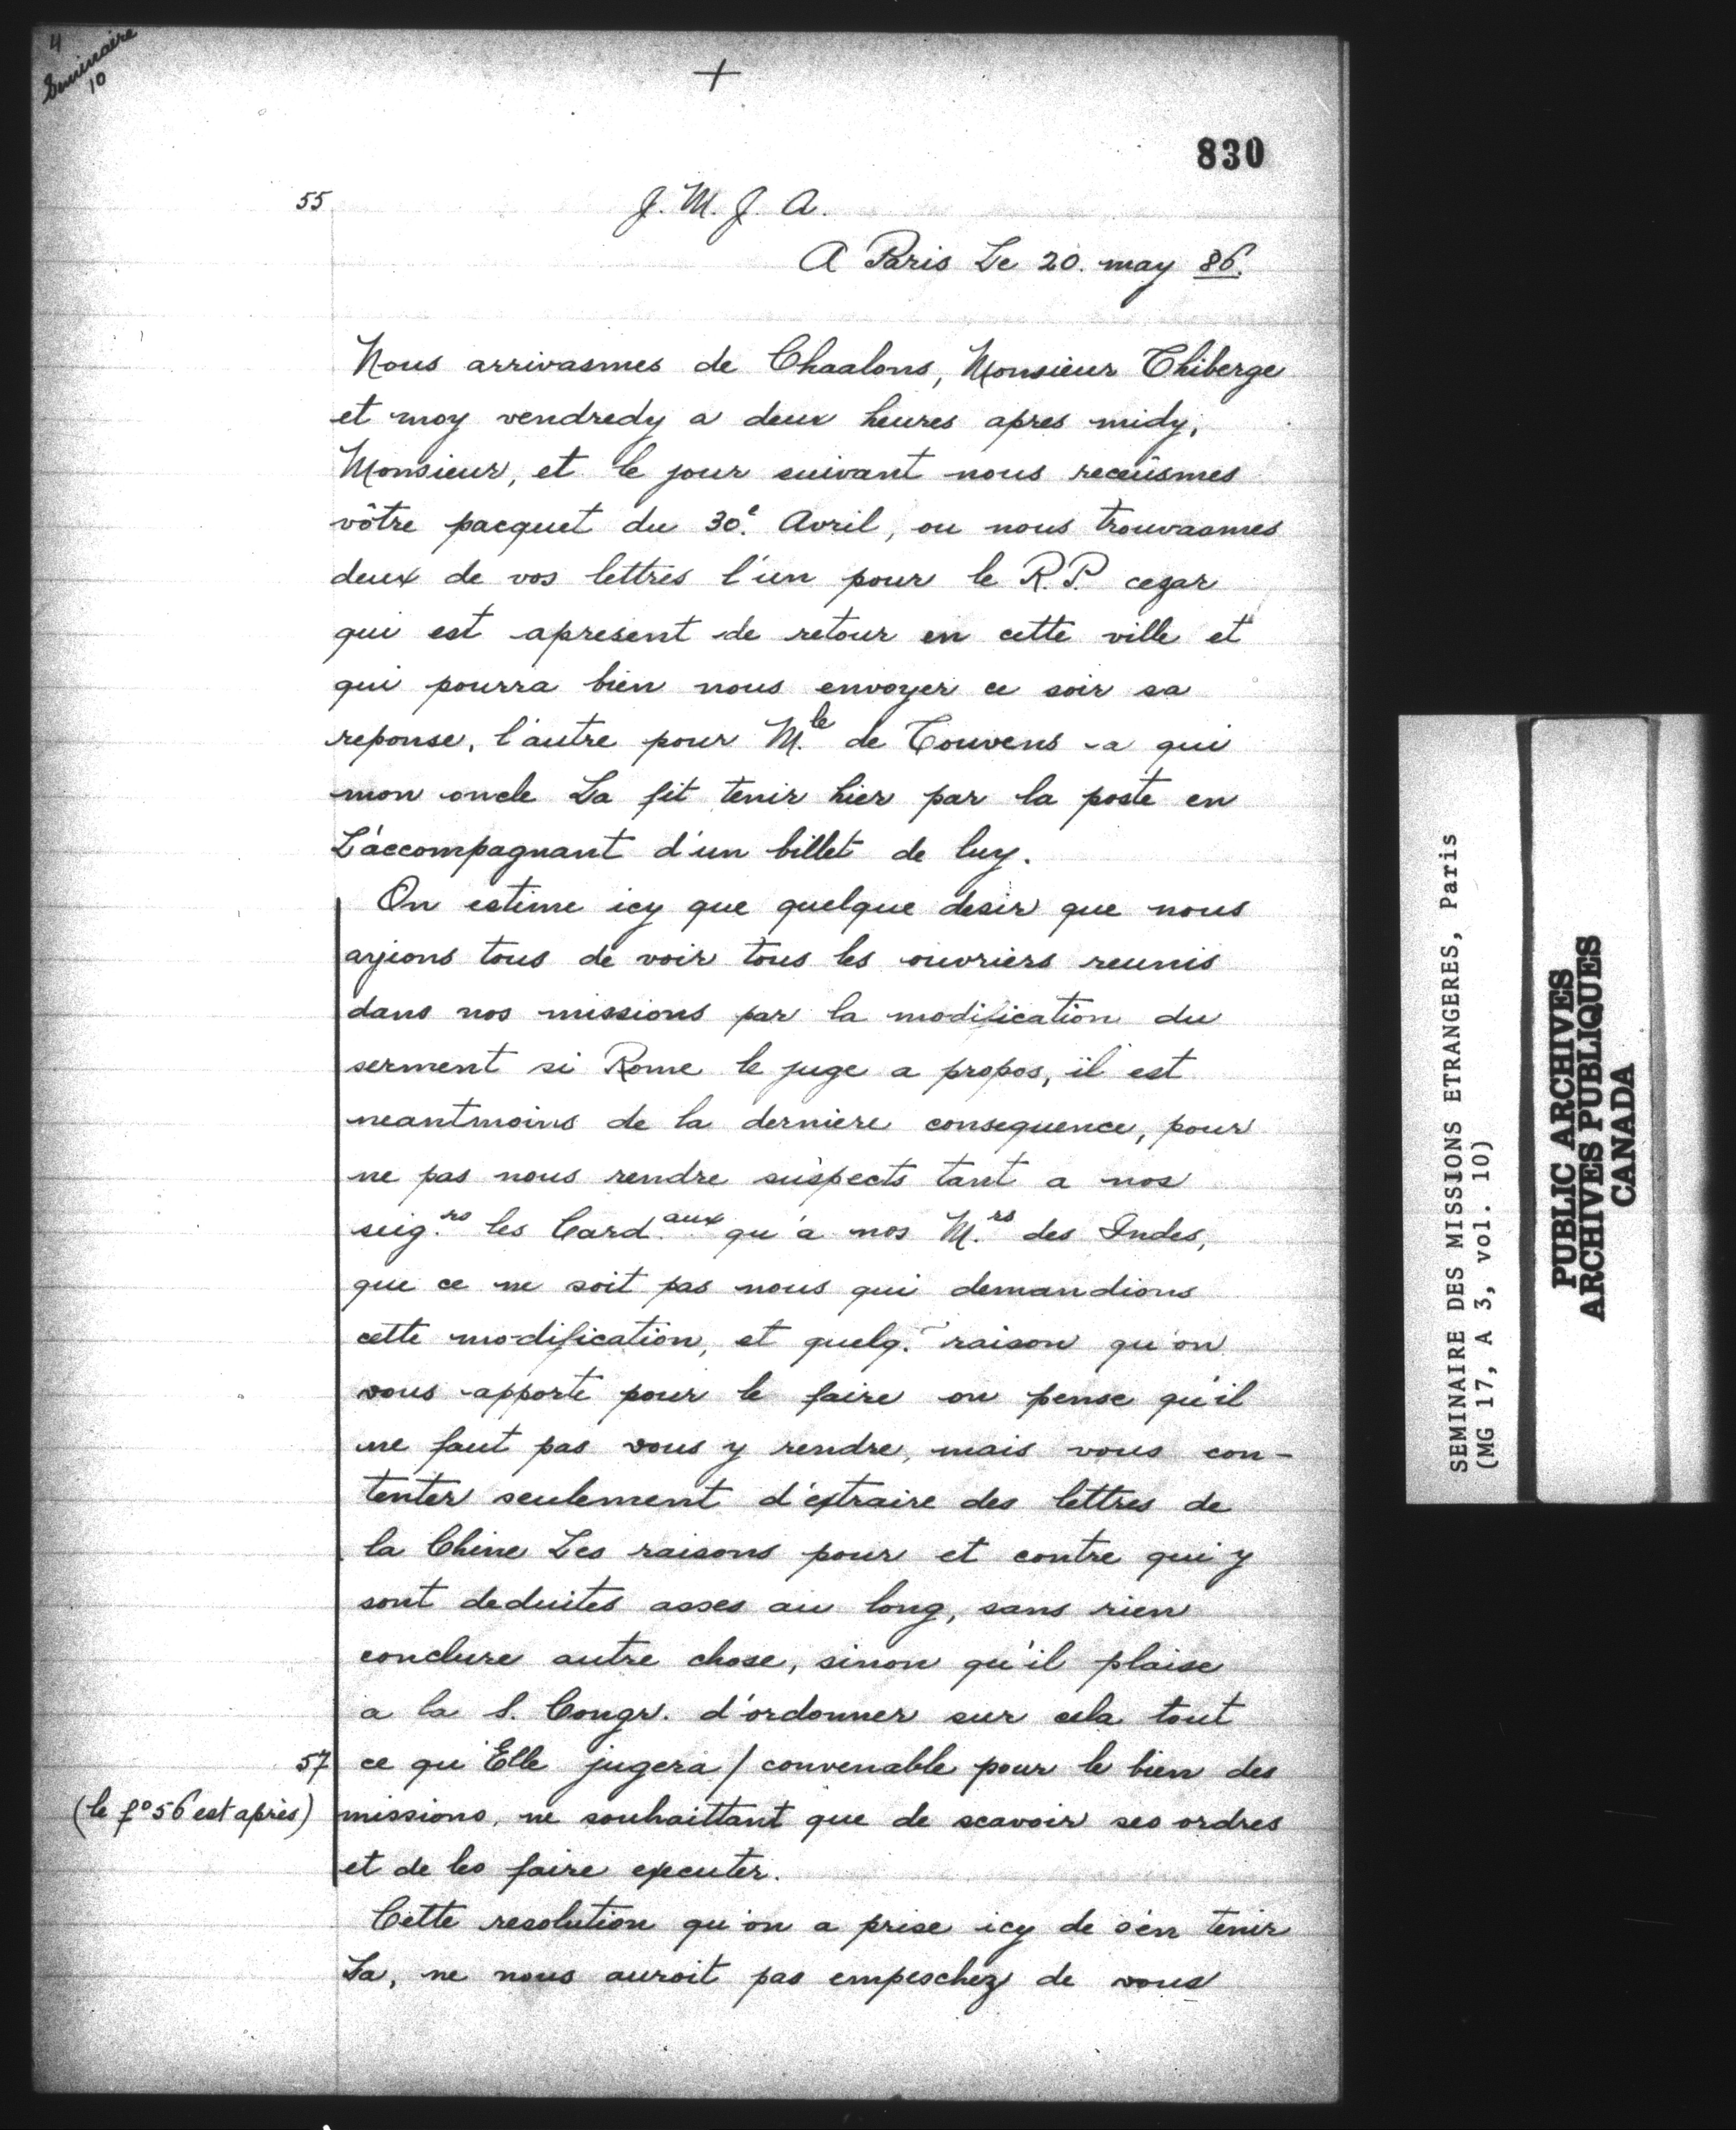 4
Seminaire
10
+
830
55
J. M. J. A.
A Paris Le 20. may 86.
Nous arrivasmes de Chaalons, Monsieur Thiberge
et moy vendredy a deux heures apres midy,
Monsieur, et le jour suivant nous receûsmes
vôtre pacquet du 30e. Avril, ou nous trouvasmes
deux de vos lettres l'un pour le R.P. cezar
qui est apresent de retour en cette ville et
qui pourra bien nous envoyer ce soir sa
reponse, l'autre pour M.le de Touvens a qui
mon oncle La fit tenir hier par la poste en
L'accompagnant d'un billet de luy.
On estime icy que quelque desir que nous
ayions tous de voir tous les ouvriers reunis
dans nos missions par la modification du
serment si Rome le juge a propos, il est
neantmoins de la derniere consequence, pour
ne pas nous rendre suspects tant a nos
seig.rs les Card.aux qu'a nos M.rs des Indes,
que ce ne soit pas nous qui demandions
cette modification, et quelq. raison qu'on
vous apporte pour le faire on pense qu'il
ne faut pas vous y rendre, mais vous con-
tenter seulement d'extraire des lettres de
la Chine Les raisons pour et contre qui y
sont deduites asses au long, sans rien
conclure autre chose, sinon qu'il plaise
a la S. Congr. d'ordonner sur cela tout
57 ce qu'Elle jugera / convenable pour le bien des
(le fo 56 est après) missions, ne souhaittant que de scavoir ses ordres
et de les faire executer.
Cette resolution qu'on a prise icy de s'en tenir
La, ne nous auroit pas empeschez de vous
SEMINAIRE DES MISSIONS ETRANGERES, Paris
(MG 17, A 3, vol. 10)
PUBLIC ARCHIVES
ARCHIVES PUBLIQUES
CANADA